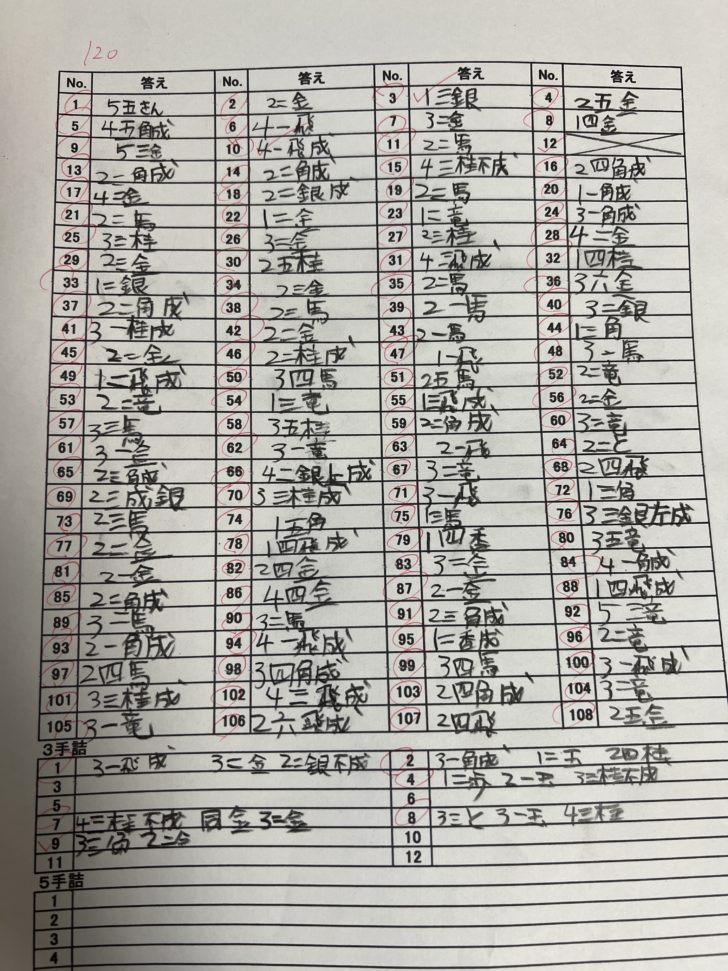 120
No. 答え No. 答え No. 答え No. 答え
1 5五きん 2 2二金 3 1三銀 4 2五金
5 4五角成 6 4一飛 7 3二金 8 1四金
9 5三金 10 4一飛成 11 2二馬 12
13 2二角成 14 2二角成 15 4三桂不成 16 2四角成
17 4二金 18 2二銀成 19 2二馬 20 1一角成
21 2二馬 22 1二金 23 1二竜 24 3一角成
25 3三桂 26 3二金 27 2三桂 28 4二金
29 2二金 30 2五桂 31 4三飛成 32 1四桂
33 1二銀 34 2二金 35 2二馬 36 3六金
37 2二角成 38 2二馬 39 2一馬 40 3二銀
41 3一桂成 42 2二金 43 2一馬 44 1三角
45 2二金 46 2二桂成 47 1一飛 48 3一馬
49 1二飛成 50 3四馬 51 2五馬 52 2二竜
53 2二竜 54 1三竜 55 1三飛成 56 2二金
57 3三馬 58 3五桂 59 2二角成 60 3二竜
61 3一金 62 3一竜 63 2一飛 64 2二と
65 2三角成 66 4二銀上成 67 3二竜 68 2四飛
69 2二成銀 70 3三桂成 71 3一飛 72 1三角
73 2三馬 74 1五角 75 1三馬 76 3三銀左成
77 2二金 78 1四飛成 79 1四香 80 3五竜
81 2一金 82 2四金 83 3二金 84 4一角成
85 2二角成 86 4四金 87 2一金 88 1四飛成
89 3一馬 90 3二馬 91 2三角成 92 5二竜
93 2一角成 94 4一飛成 95 1二香成 96 2二竜
97 2四馬 98 3四角成 99 3四馬 100 3一飛成
101 3三桂成 102 4二飛成 103 2四角成 104 3二竜
105 3一竜 106 2六飛成 107 2四飛 108 2五金
3手詰
1 3一飛成 3二金 2二銀不成 2 3一角成 1二玉 2四桂
3 4 1二歩 2一玉 3三桂不成
5 6
7 4三桂不成 同金 3二金 8 3三と 3一玉 4三桂
9 3三角 2二金 10
11 12
5手詰
1
2
3
4